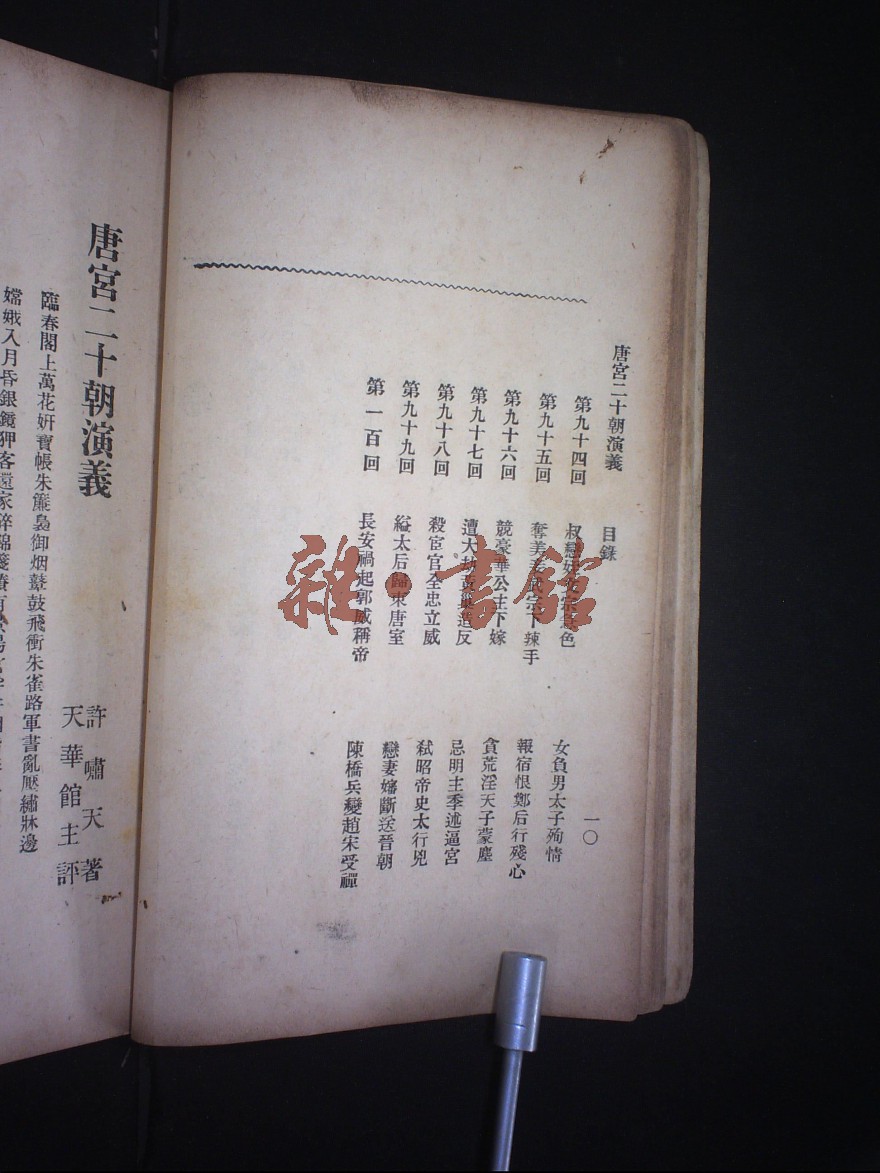 唐宮二十朝演義　目錄　一〇
第九十四回　叔　色　女負男太子殉情
第九十五回　奪美　下辣手　報宿恨鄭后行殘心
第九十六回　競豪華公主下嫁　貪荒淫天子蒙塵
第九十七回　遭大劫黃巢造反　忌明主季述逼宮
第九十八回　殺宦官全忠立威　弒昭帝史太行兇
第九十九回　縊太后歸東唐室　戀妻嬸斷送晉朝
第一百回　長安禍起郭威稱帝　陳橋兵變趙宋受禪
唐宮二十朝演義
許嘯天著
天華館主評
臨春閣上萬花妍寶帳朱簾裊御烟鼙鼓飛衝朱雀路軍書亂壓繡牀邊
嫦娥入月昏銀鏡狎客還家碎錦箋
雜·書館